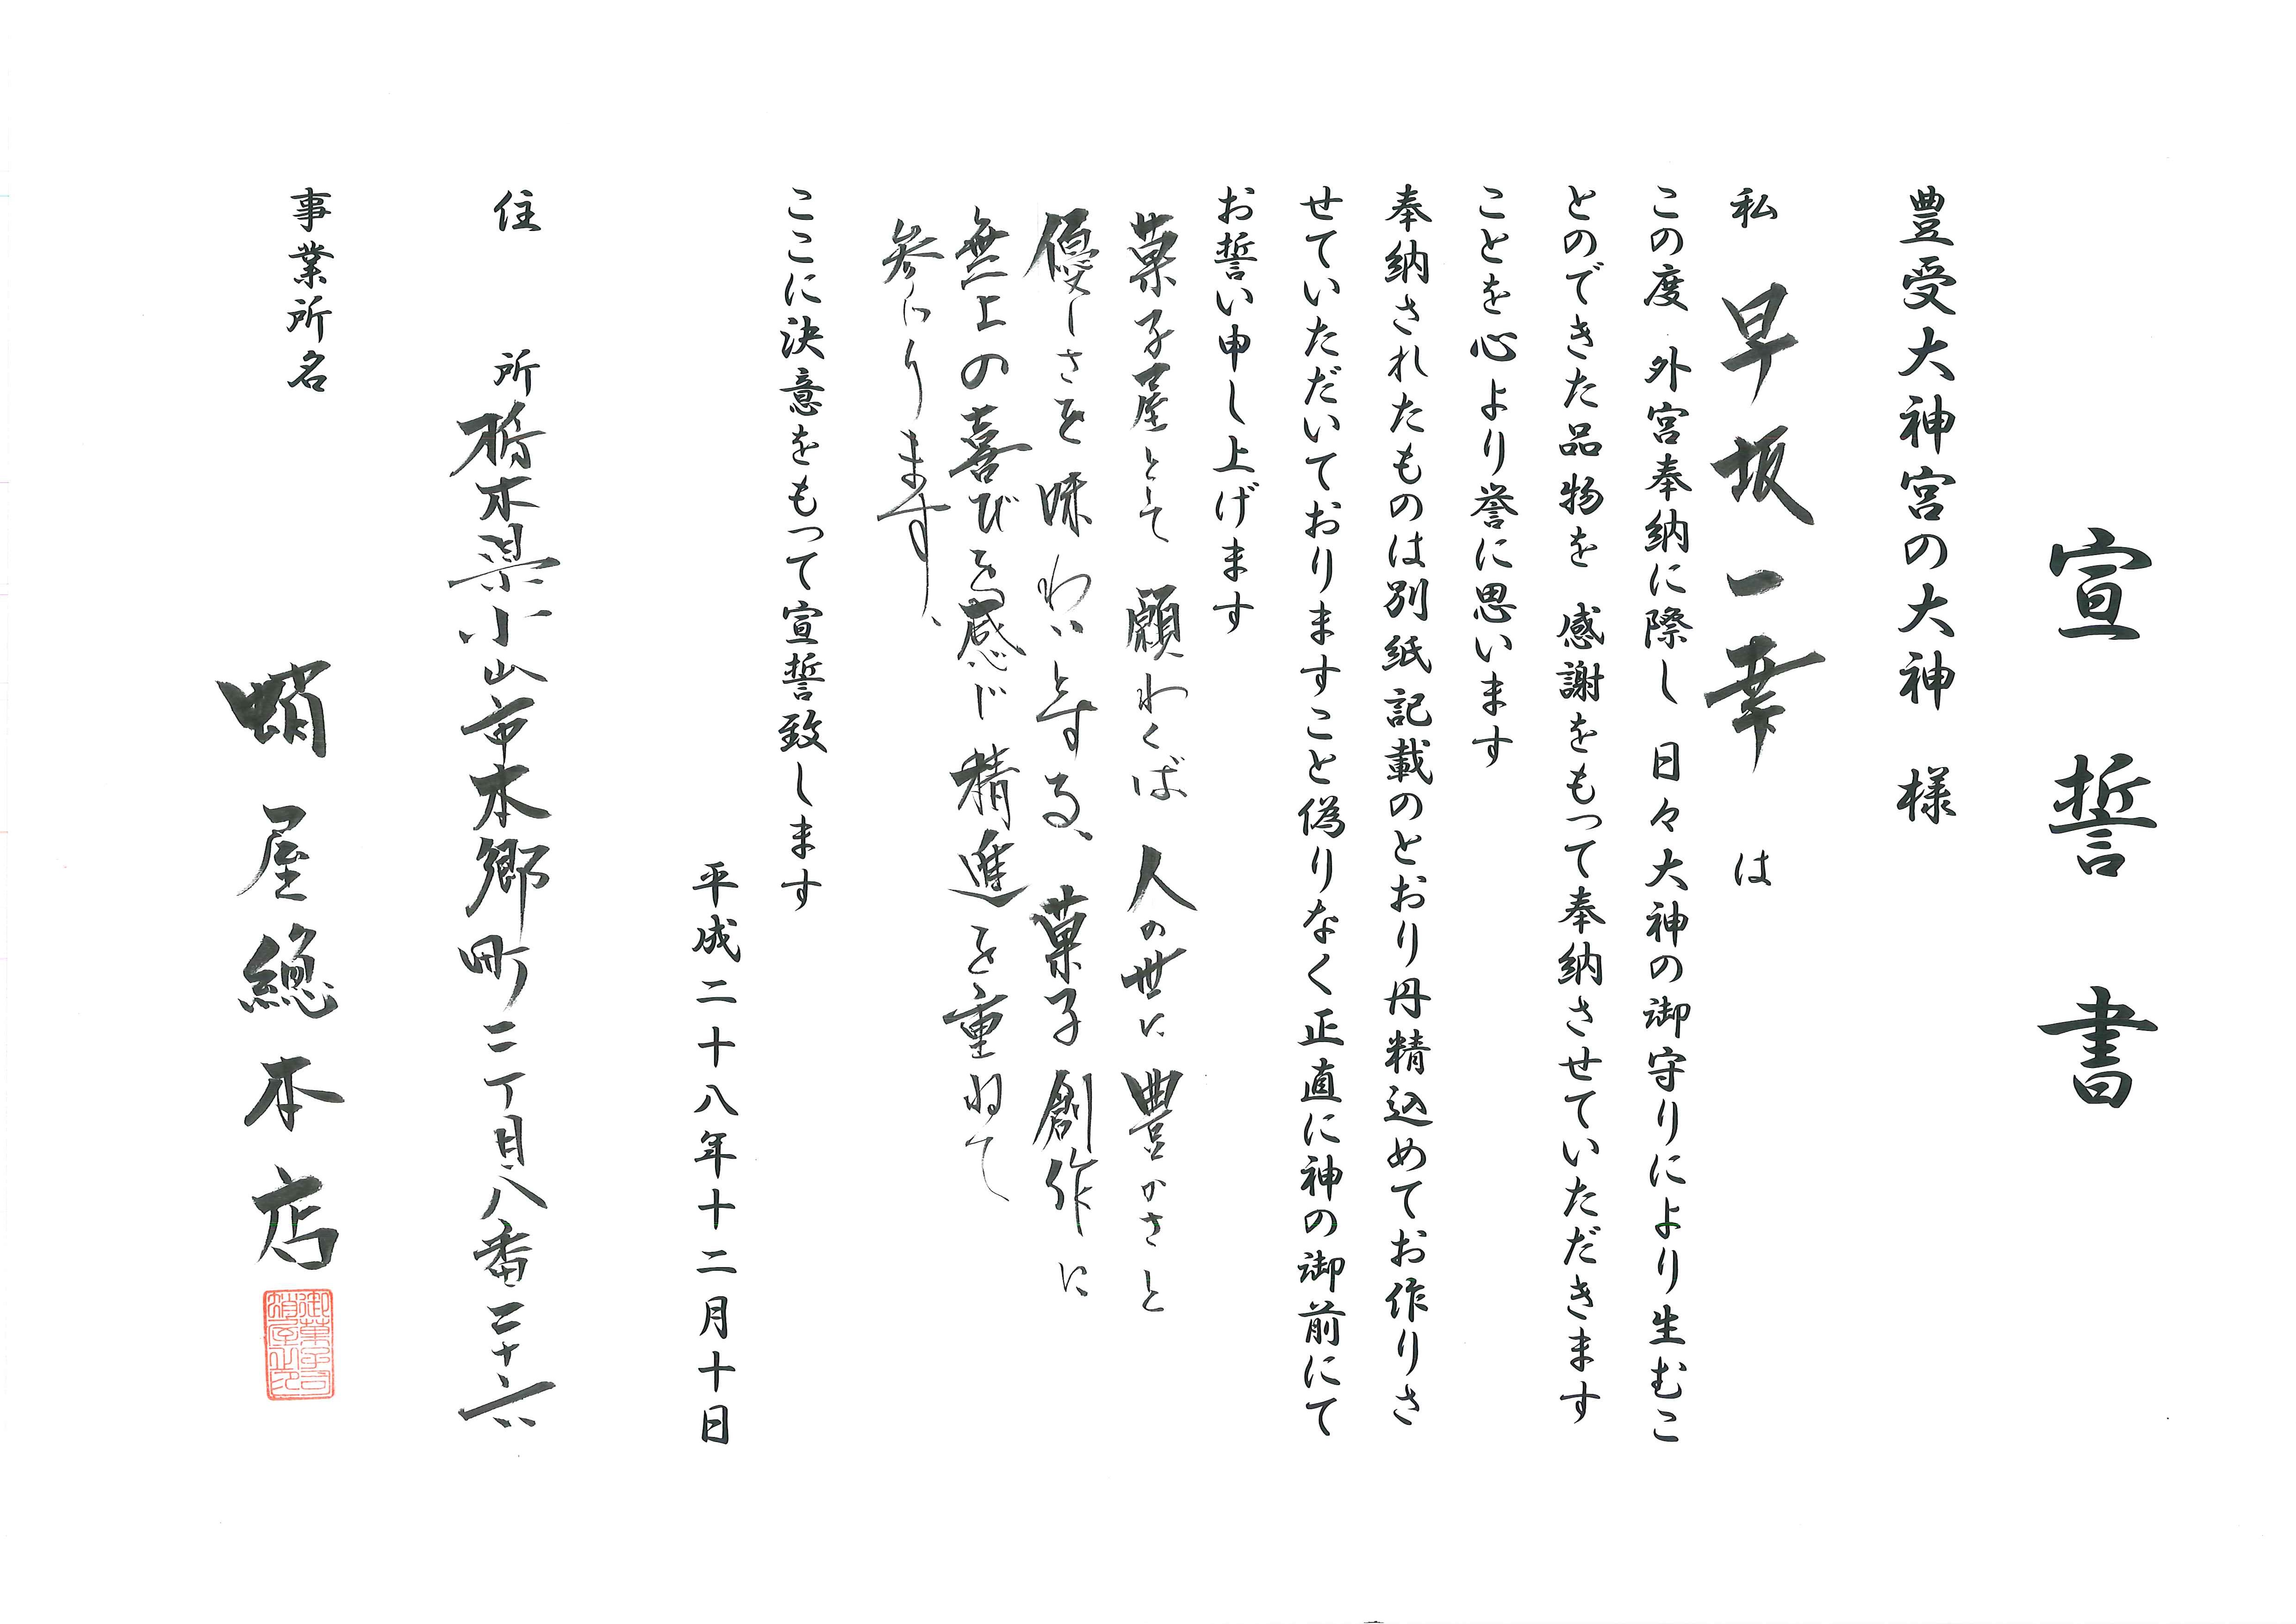 宣誓書
豊受大神宮の大神 様
私 早坂一幸 は
この度 外宮奉納に際し 日々大神の御守りにより生むこ
とのできた品物を 感謝をもって奉納させていただきます
ことを心より誉に思います
奉納されたものは別紙記載のとおり丹精込めてお作りさ
せていただいておりますこと偽りなく正直に神の御前にて
お誓い申し上げます
菓子屋として 願わくば 人の世に 豊かさと
優しさを味わいとする、菓子創作に
無上の喜びを感じ 精進を重ねて
参ります、
ここに決意をもって宣誓致します
平成二十八年十二月十日
住 所 栃木県小山市本郷町二丁目八番二十六
事業所名 蛸屋總本店